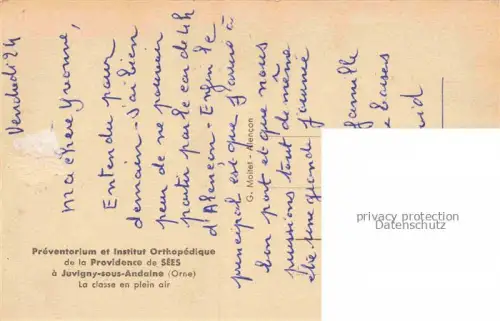 Vendredi 24
Ma chère Yvonne,
Entendu pour
demain - J'ai bien
peur de ne pouvoir
partir par le car de 4h
d'Alençon - Enfin le
principal est que j'arrive à
bon port et que nous
puissions tout de même
être une grande journée
famille
baisers
G. Moitet - Alençon
Préventorium et Institut Orthopédique
de la Providence de SÉES
à Juvigny-sous-Andaine (Orne)
La classe en plein air
privacy protection
Datenschutz